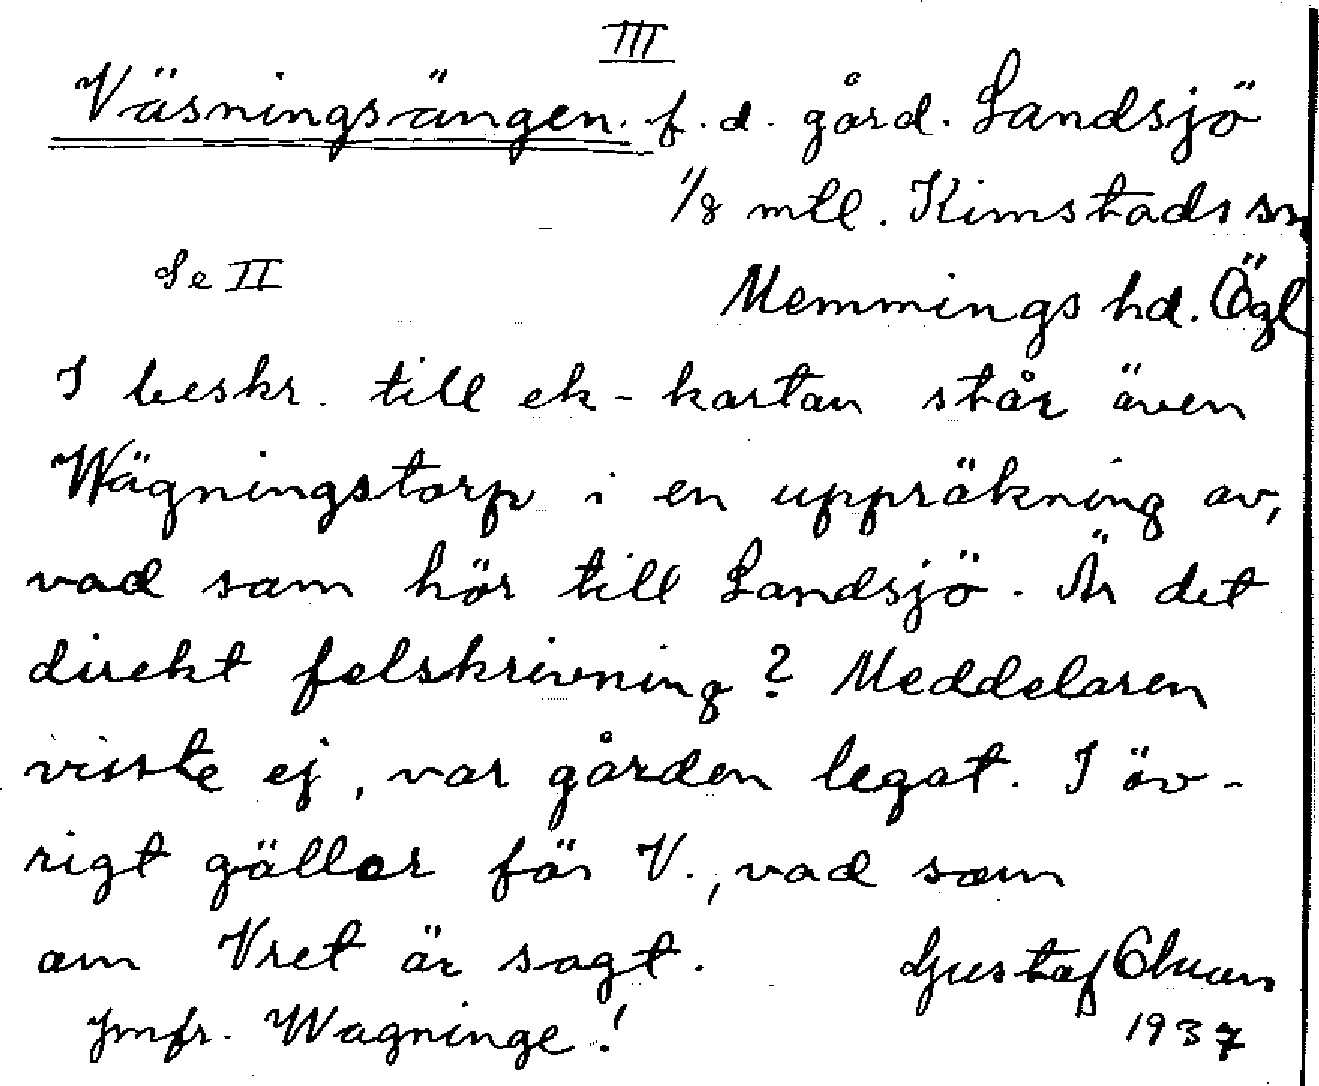 III
Väsningsängen. f. d. gård. Landsjö
1/8 mtl. Kimstads sn
Se II
Memmings hd. Ögl
I beskr. till ek-kartan står även
Wägningstorp i en uppräkning av,
vad som hör till Landsjö. Är det
direkt felskrivning? Meddelaren
visste ej, var gården legat. I öv-
rigt gäller för V., vad som
om Vret är sagt.
Gustaf
1937
Jmfr. Wagninge!